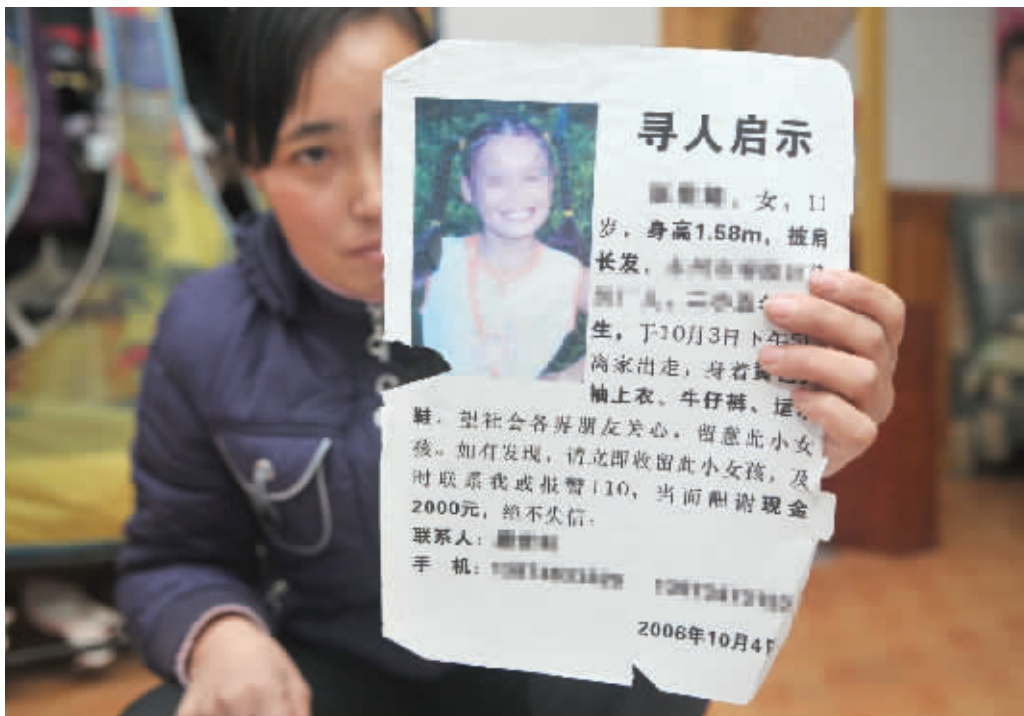 寻人启示
，女，11
岁，身高1.58m，披肩
长发，
生，于10月3日下午5
离家出走，身着
袖上衣、牛仔裤、运
鞋，望社会各界朋友关心，留意此小女
孩。如有发现，请立即收留此小女孩，及
时联系我或报警110，当面酬谢现金
2000元，绝不失信。
联系人：
手 机：
2006年10月4日